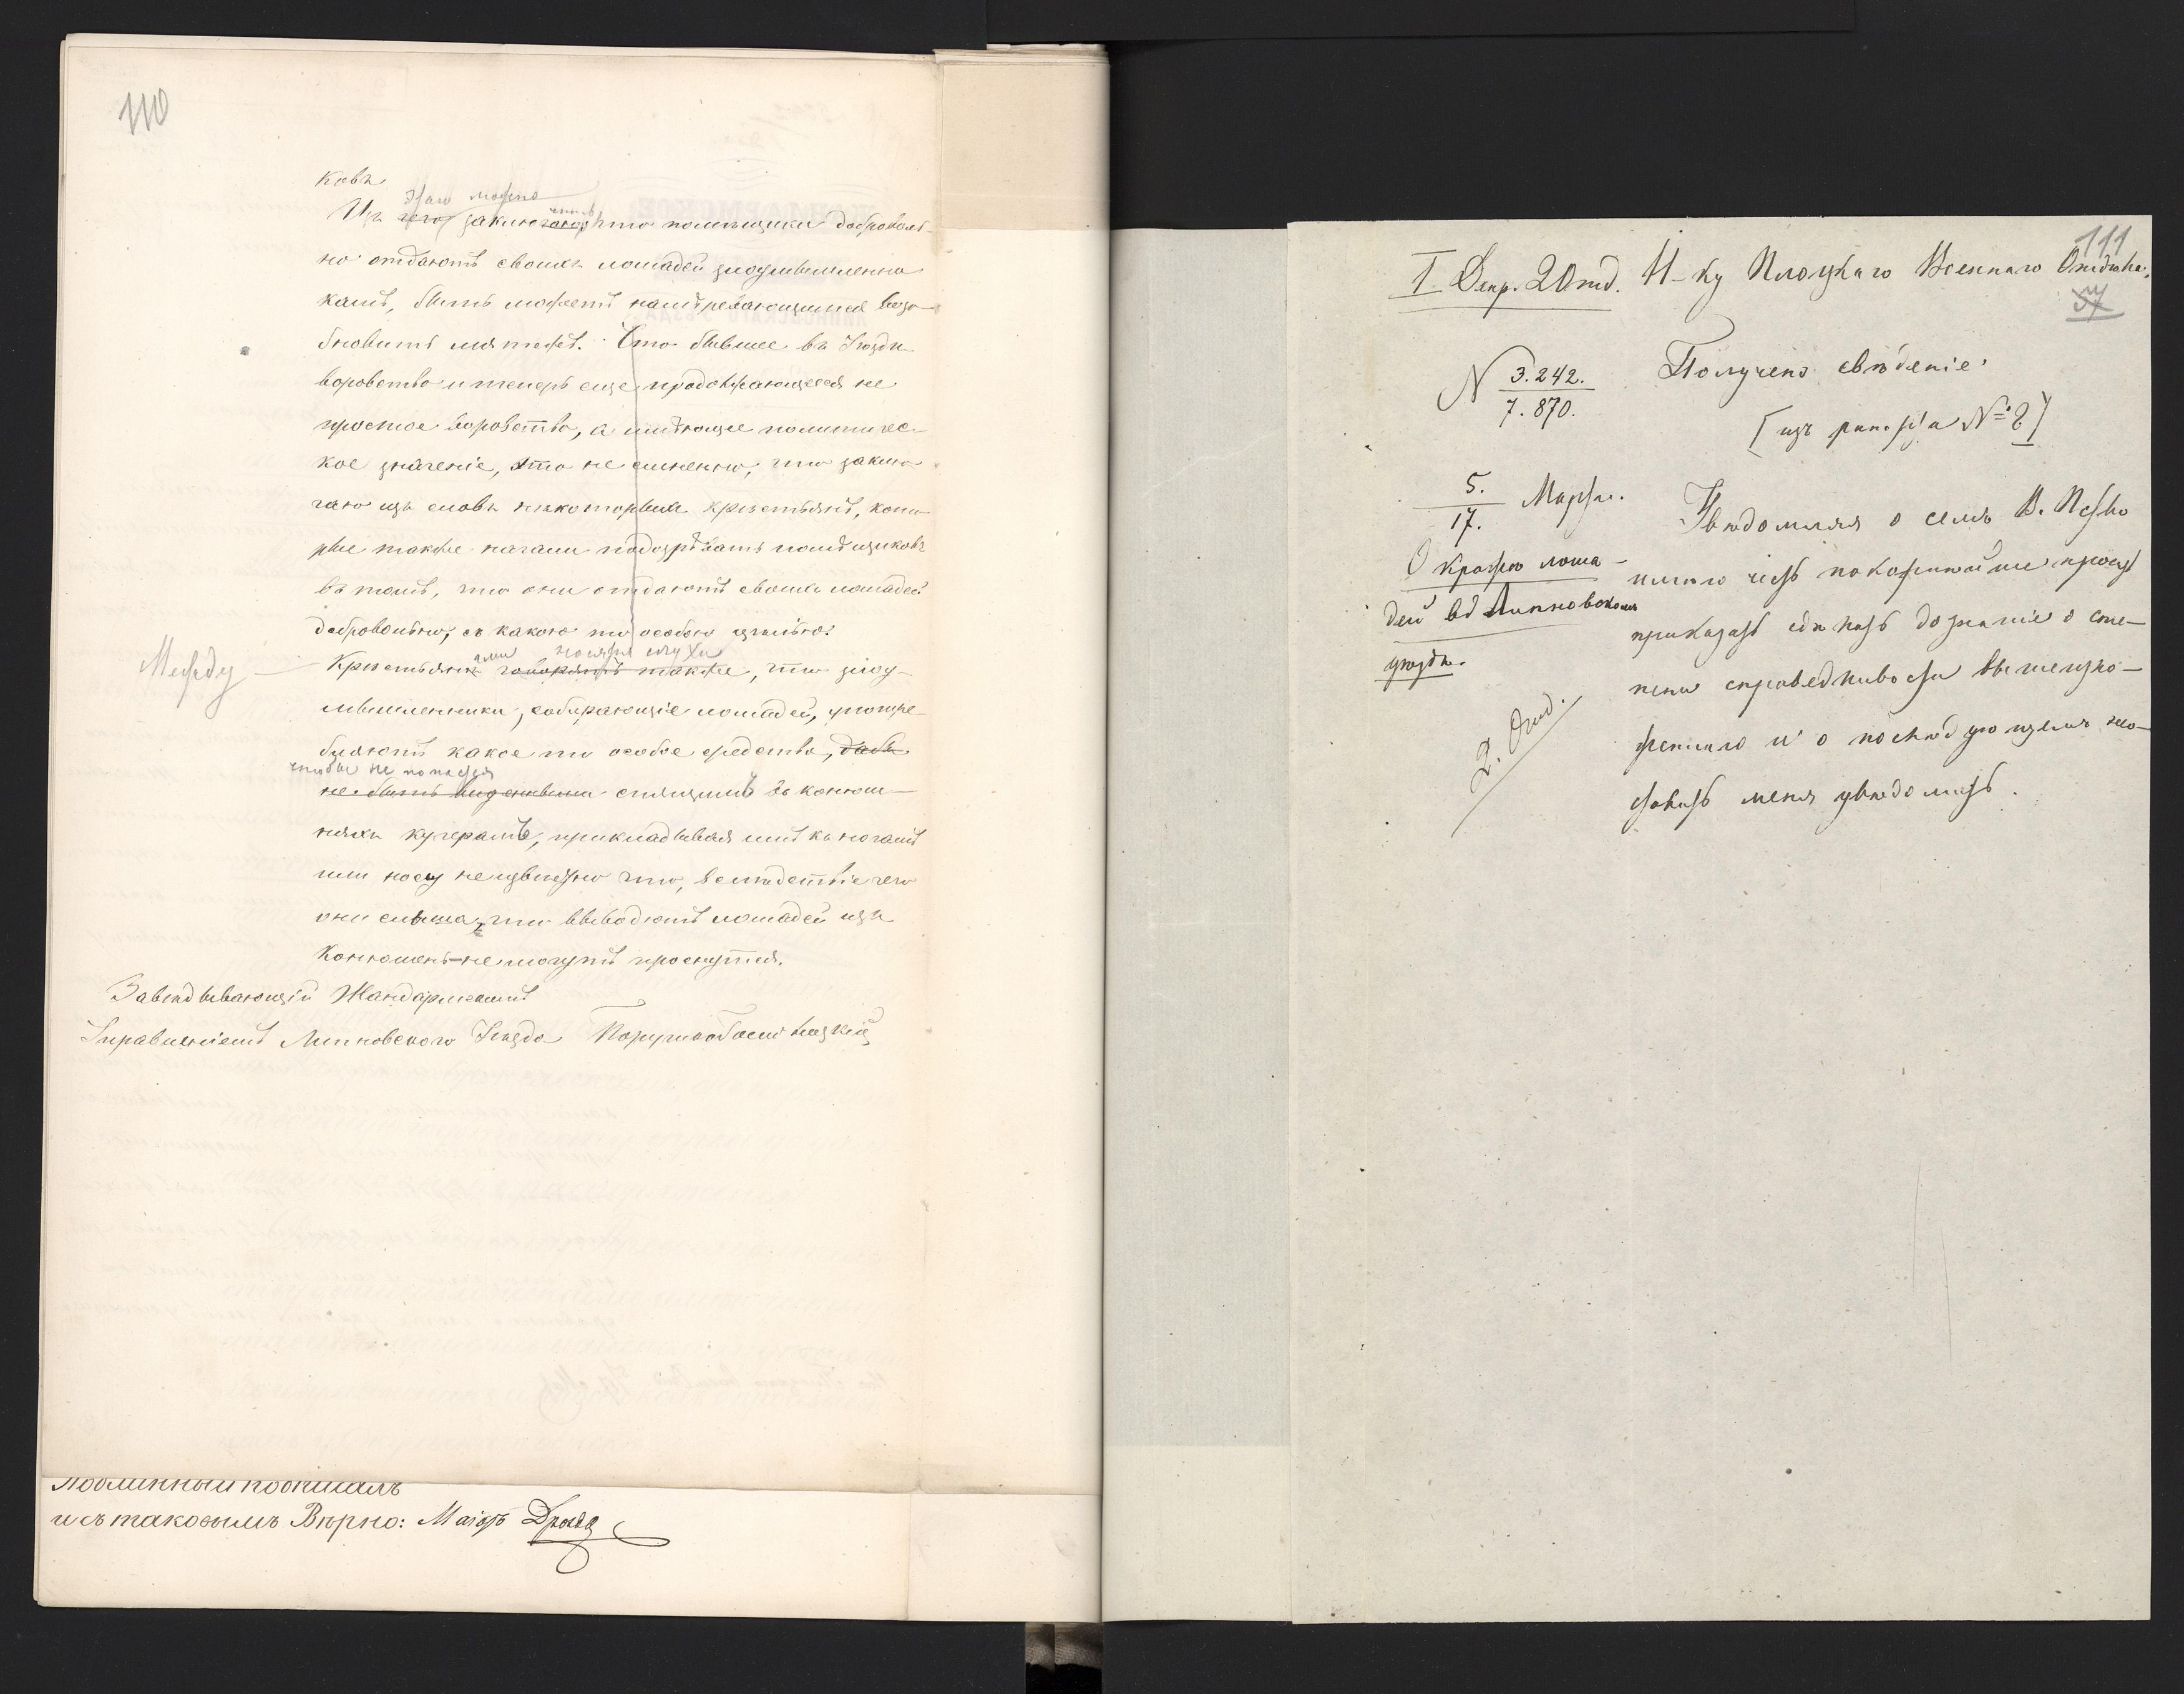 110
ковъ.
этаго можно
Изъ чего заключаю, что помѣщики доброволь-
но отдаютъ своихъ лошадей злоумышленни-
камъ, быть можетъ намѣревающимся возо-
бновить мятежъ. Что бывшее въ Уѣздѣ
воровство и теперь еще продолжающееся не
простое воровство, а имѣющее политичес-
кое значеніе, это не сомненно, что заклю-
чаю изъ словъ нѣкоторыхъ крестьянъ, кото-
рые также начали подозрѣвать помѣщиковъ
въ томъ, что они отдаютъ своихъ лошадей
добровольно, съ какою то особою цѣлью.
ами носятся слухи
Между Крестьянъ говорятъ также, что злоу-
мышленники, собирающіе лошадей, употре-
бляютъ какое то особое средство, дабы
чтобы не попасться
не быть видѣнными спящимъ въ конюш-
няхъ кучерамъ, прикладывая имъ къ ногамъ
или носу неизвѣстно что, вслѣдствіе чего
они слыша, что выводятъ лошадей изъ
конюшень не могутъ проснуться.
Завѣдывающій Жандармскимъ
Управленіемъ Липновскаго Уѣзда Поручикъ
Подлинный подписалъ
и съ таковымъ Вѣрно: Маіоръ
111
I Деп. 2 Отд. Н-ку Плоцкаго Военнаго Отдѣла.
37
N 3.242.
7.870.
Получено свѣденіе:
[изъ рапорта №: 2]
5.
17. Марта.
О кражѣ лоша-
дей въ Липновскомъ
уѣздѣ.
2. Отд.
Увѣдомляя о семъ В. Пств
имѣю честь покорнѣйше просить
приказать сдѣлать дознаніе о сте-
пени справедливости вышеизло-
женнаго и о послѣдующемъ не о-
ставить меня увѣдомить.